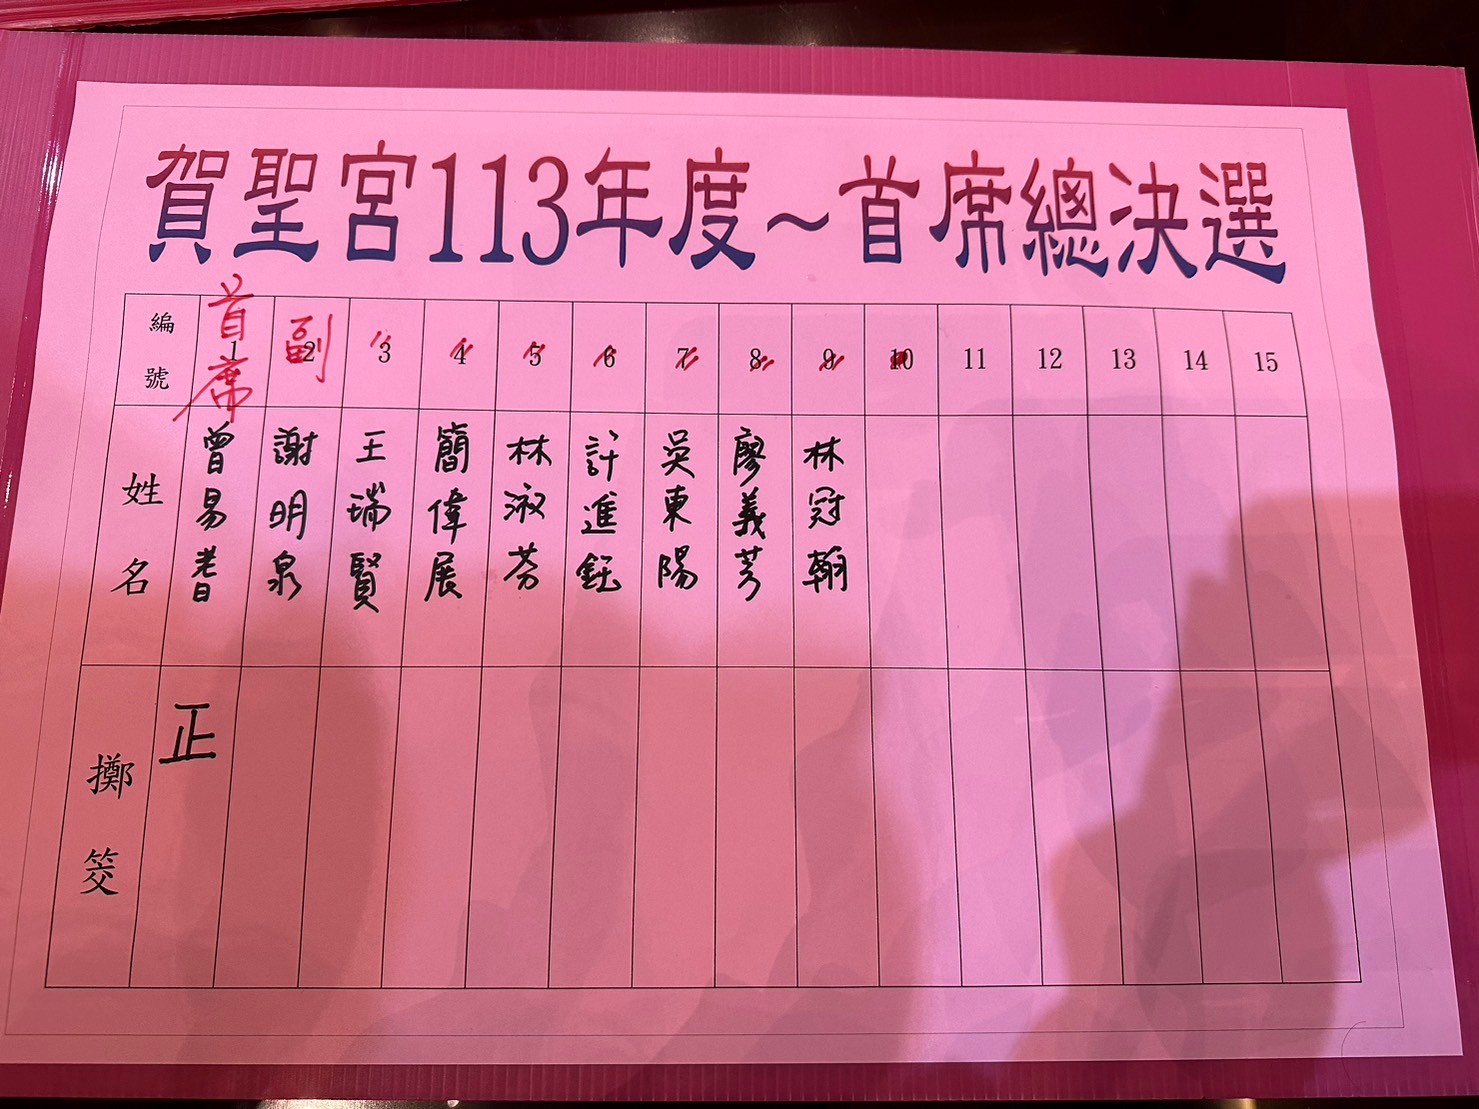 賀聖宮113年度～首席總決選
編號 1 2 3 4 5 6 7 8 9 10 11 12 13 14 15
首席 副 〃 〃 〃 〃 〃 〃 〃
姓名
曾易
謝明泉
王瑞賢
簡偉展
林淑芬
許進鈺
吳東陽
廖義芳
林冠翰
擲筊
正